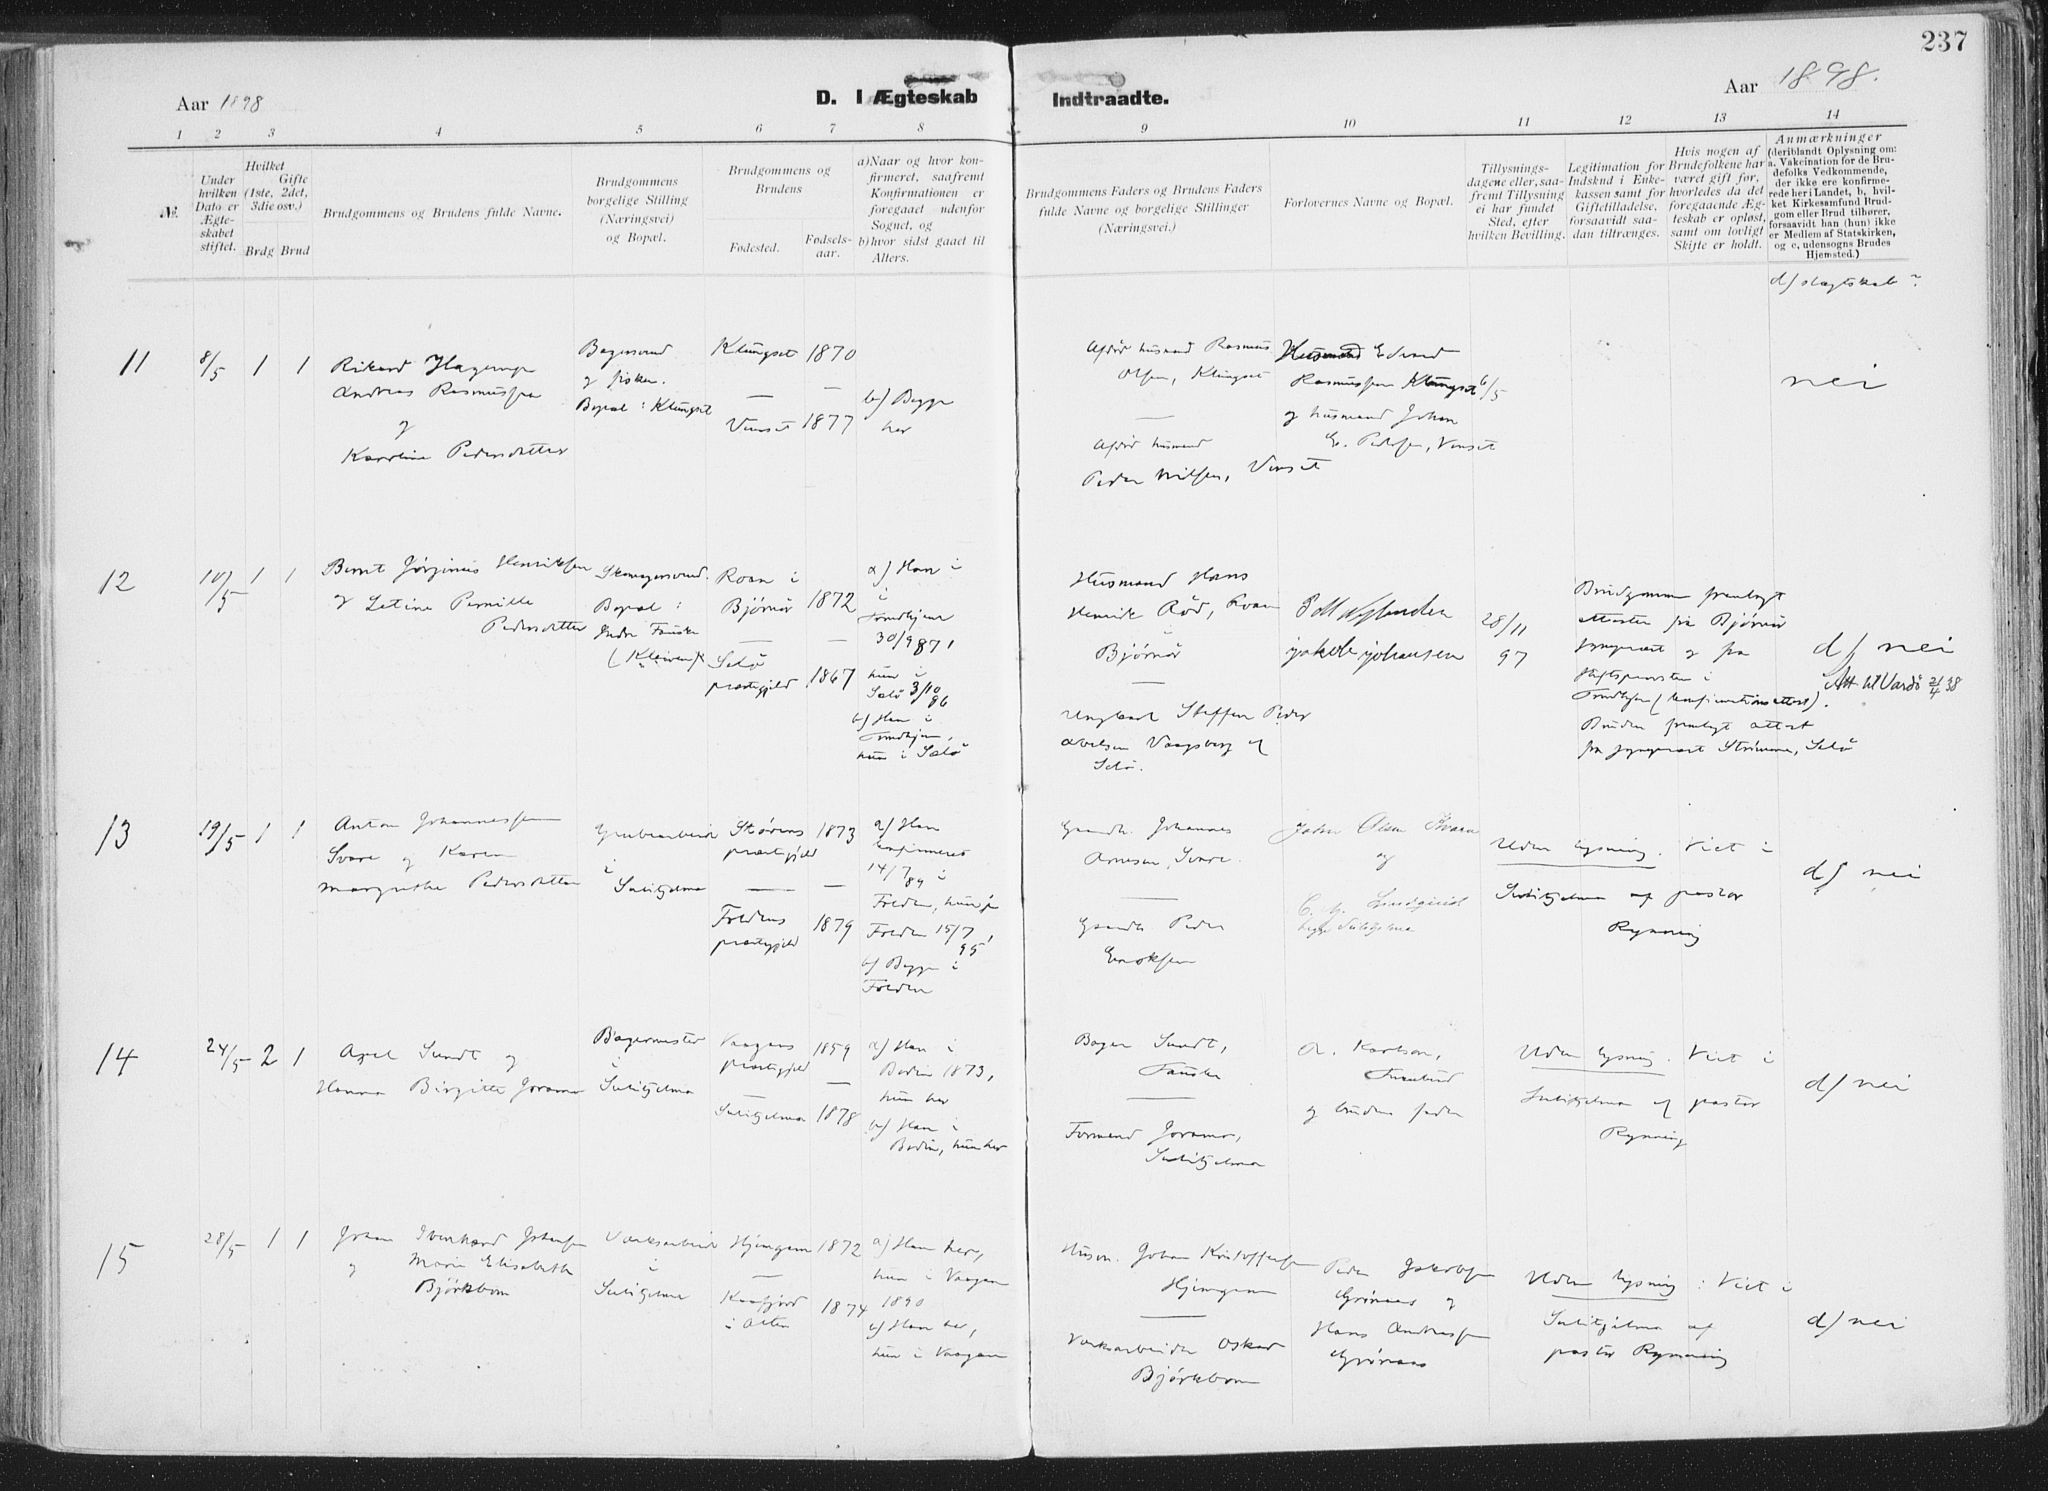 237
Aar 1898
D. I Ægteskab Indtraadte.
Aar 1898.
1 2 3 4 5 6 7 8 9 10 11 12 13 14
№.
Under
hvilken
Dato er
Ægte-
skabet
stiftet.
Hvilket
Gifte
(1ste, 2det,
3die osv.)
Brdg Brud
Brudgommens og Brudens fulde Navne.
Brudgommens
borgelige Stilling
(Næringsvei)
og Bopæl.
Brudgommens og
Brudens
Fødested.
Fødsels-
aar.
a) Naar og hvor kon-
firmeret, saafremt
Konfirmationen er
foregaaet udenfor
Sognet, og
b) hvor sidst gaaet til
Alters.
Brudgommens Faders og Brudens Faders
fulde Navne og borgelige Stillinger
(Næringsvei.)
Forlovernes Navne og Bopæl.
Tillysnings-
dagene eller, saa-
fremt Tillysning
ei har fundet
Sted, efter
hvilken Bevilling.
Legitimation for
Indskud i Enke-
kassen samt for
Giftetilladelse,
forsaavidt saa-
dan tiltrænges.
Hvis nogen af
Brudefolkene har
været gift før,
hvorledes da det
foregaaende Æg-
teskab er opløst,
samt om lovligt
Skifte er holdt.
Anmærkninger
(deriblandt Oplysning om:
a. Vakcination for de Bru-
defolks Vedkommende,
der ikke ere konfirme-
rede her i Landet, b, hvil-
ket Kirkesamfund Brud-
gom eller Brud tilhører,
forsaavidt han (hun) ikke
er Medlem af Statskirken,
og c, udensogns Brudes
Hjemsted.)
d) slægtskab?
11 8/5 1 1
Rikard Hagerup
Andreas Rasmussen
og
Karoline Pedersdatter
Bagersvend
og fisker.
Bopæl: Klungset
Klungset 1870
—
Venset 1877
b) Begge
her
Afdød husmand Rasmus
Olsen, Klungset
—
Afdød husmand
Peder Nilsen, Venset
Husmand Edvard
Rasmussen Klungset
og husmand Johan
E. Pedersen, Venset
6/5
nei
12 10/5 1 1
Bernt Jørginus Henriksen
og Letine Pernille
Pedersdatter
Skomagersvend.
Bopæl:
Indre Fauske
(Kleiven)
Roan i
Bjørnør 1872
— —
Selø
præstegjeld 1867
a) Han i
i
Trondhjem
30/9 871
hun i
Selø 3/10
86
b) Han i
Trondhjem,
hun i Selø
Husmand Hans
Henrik Rød, Roan
i
Bjørnør
—
Ungkarl Steffen Peder
Vaagsberg af
Selø.
jakob johansen
28/11
97
Brudgommen fremlagt
attester fra Bjørnør
og fra
i
Trondhjem (konfirmationsattest).
Bruden fremlagt attest
fra Selø
d) nei
Att. til Vardø 21/4 38
13 19/5 1 1
Anton Johannessen
Svare og Karen
Margrethe Pedersdatter
Grubearbeider
i
Sulitjelma
Størens 1873
præstegjeld
— —
Foldens 1879
præstegjeld
a) Han
konfirmeret
14/7 89 i
Folden, hun i
Folden 15/7
95
b) Begge i
Folden
Gaardbr. Johannes
Arnesen, Svare.
—
Gaardbr. Peder
Enoksen
John Olsen Svare
og
C. M. Lindqvist
begge Sulitjelma
Uden lysning. Viet i
Sulitjelma af pastor
Rynning
d) nei
14 24/5 2 1
Axel Sundt og
Hanna Birgitte Jorama
Bagermester
i
Sulitjelma
Vaagens 1859
præstegjeld
—
Sulitjelma 1878
a) Han i
Bodin 1873,
hun her
b) Han i
Bodin, hun her
Bager Sundt,
Fauske
—
Formand Jorama,
Sulitjelma
A. Karlson,
Furulund
og brudens fader
Uden lysning. Viet i
Sulitjelma af pastor
Rynning
d) nei
15 28/5 1 1
Johan Evenhard Johansen
og Marie Elisabeth
Björkbom
Verksarbeider
i
Sulitjelma
Hjemgam 1872
—
Kaafjord 1874
i Alten
a) Han her,
hun i Vaagan
1890
b) Han her,
hun i Vaagan
Husm. Johan Kristoffersen
Hjemgam
—
Verksarbeider Oskar
Björkbom
Peder Jakobsen
Grönaas og
Hans Andreassen
Grönaas
Uden lysning: Viet i
Sulitjelma af
pastor Rynning
d) nei